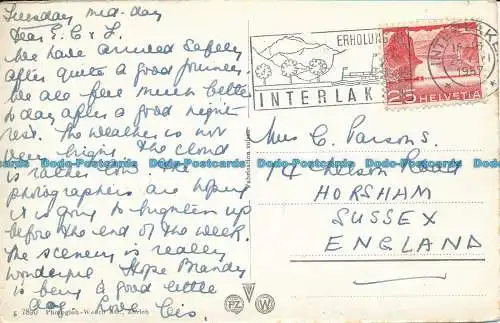 Tuesday mid-day
Dear E.C & F.
We have arrived safely
after quite a good journey.
We are feel much better
to day after a good night
rest. The weather is not
very bright. The cloud
is rather low. The
photographers are hoping
it is going to brighten up
before the end of the week.
The scenery is really
wonderful. Hope Brandy
is being a good little
dog. Love Cis.
7890 Photoglob-Wehrli A.G., Zürich
ERHOLUNG
INTERLAK
INTERLAKEN
1952
25 HELVETIA
Mrs C. Parsons.
74 Nelson Road
HORSHAM
SUSSEX
ENGLAND
PZ W
Dodo-Postcards Dodo-Postcards Dodo-Postcards Dodo-Postcards